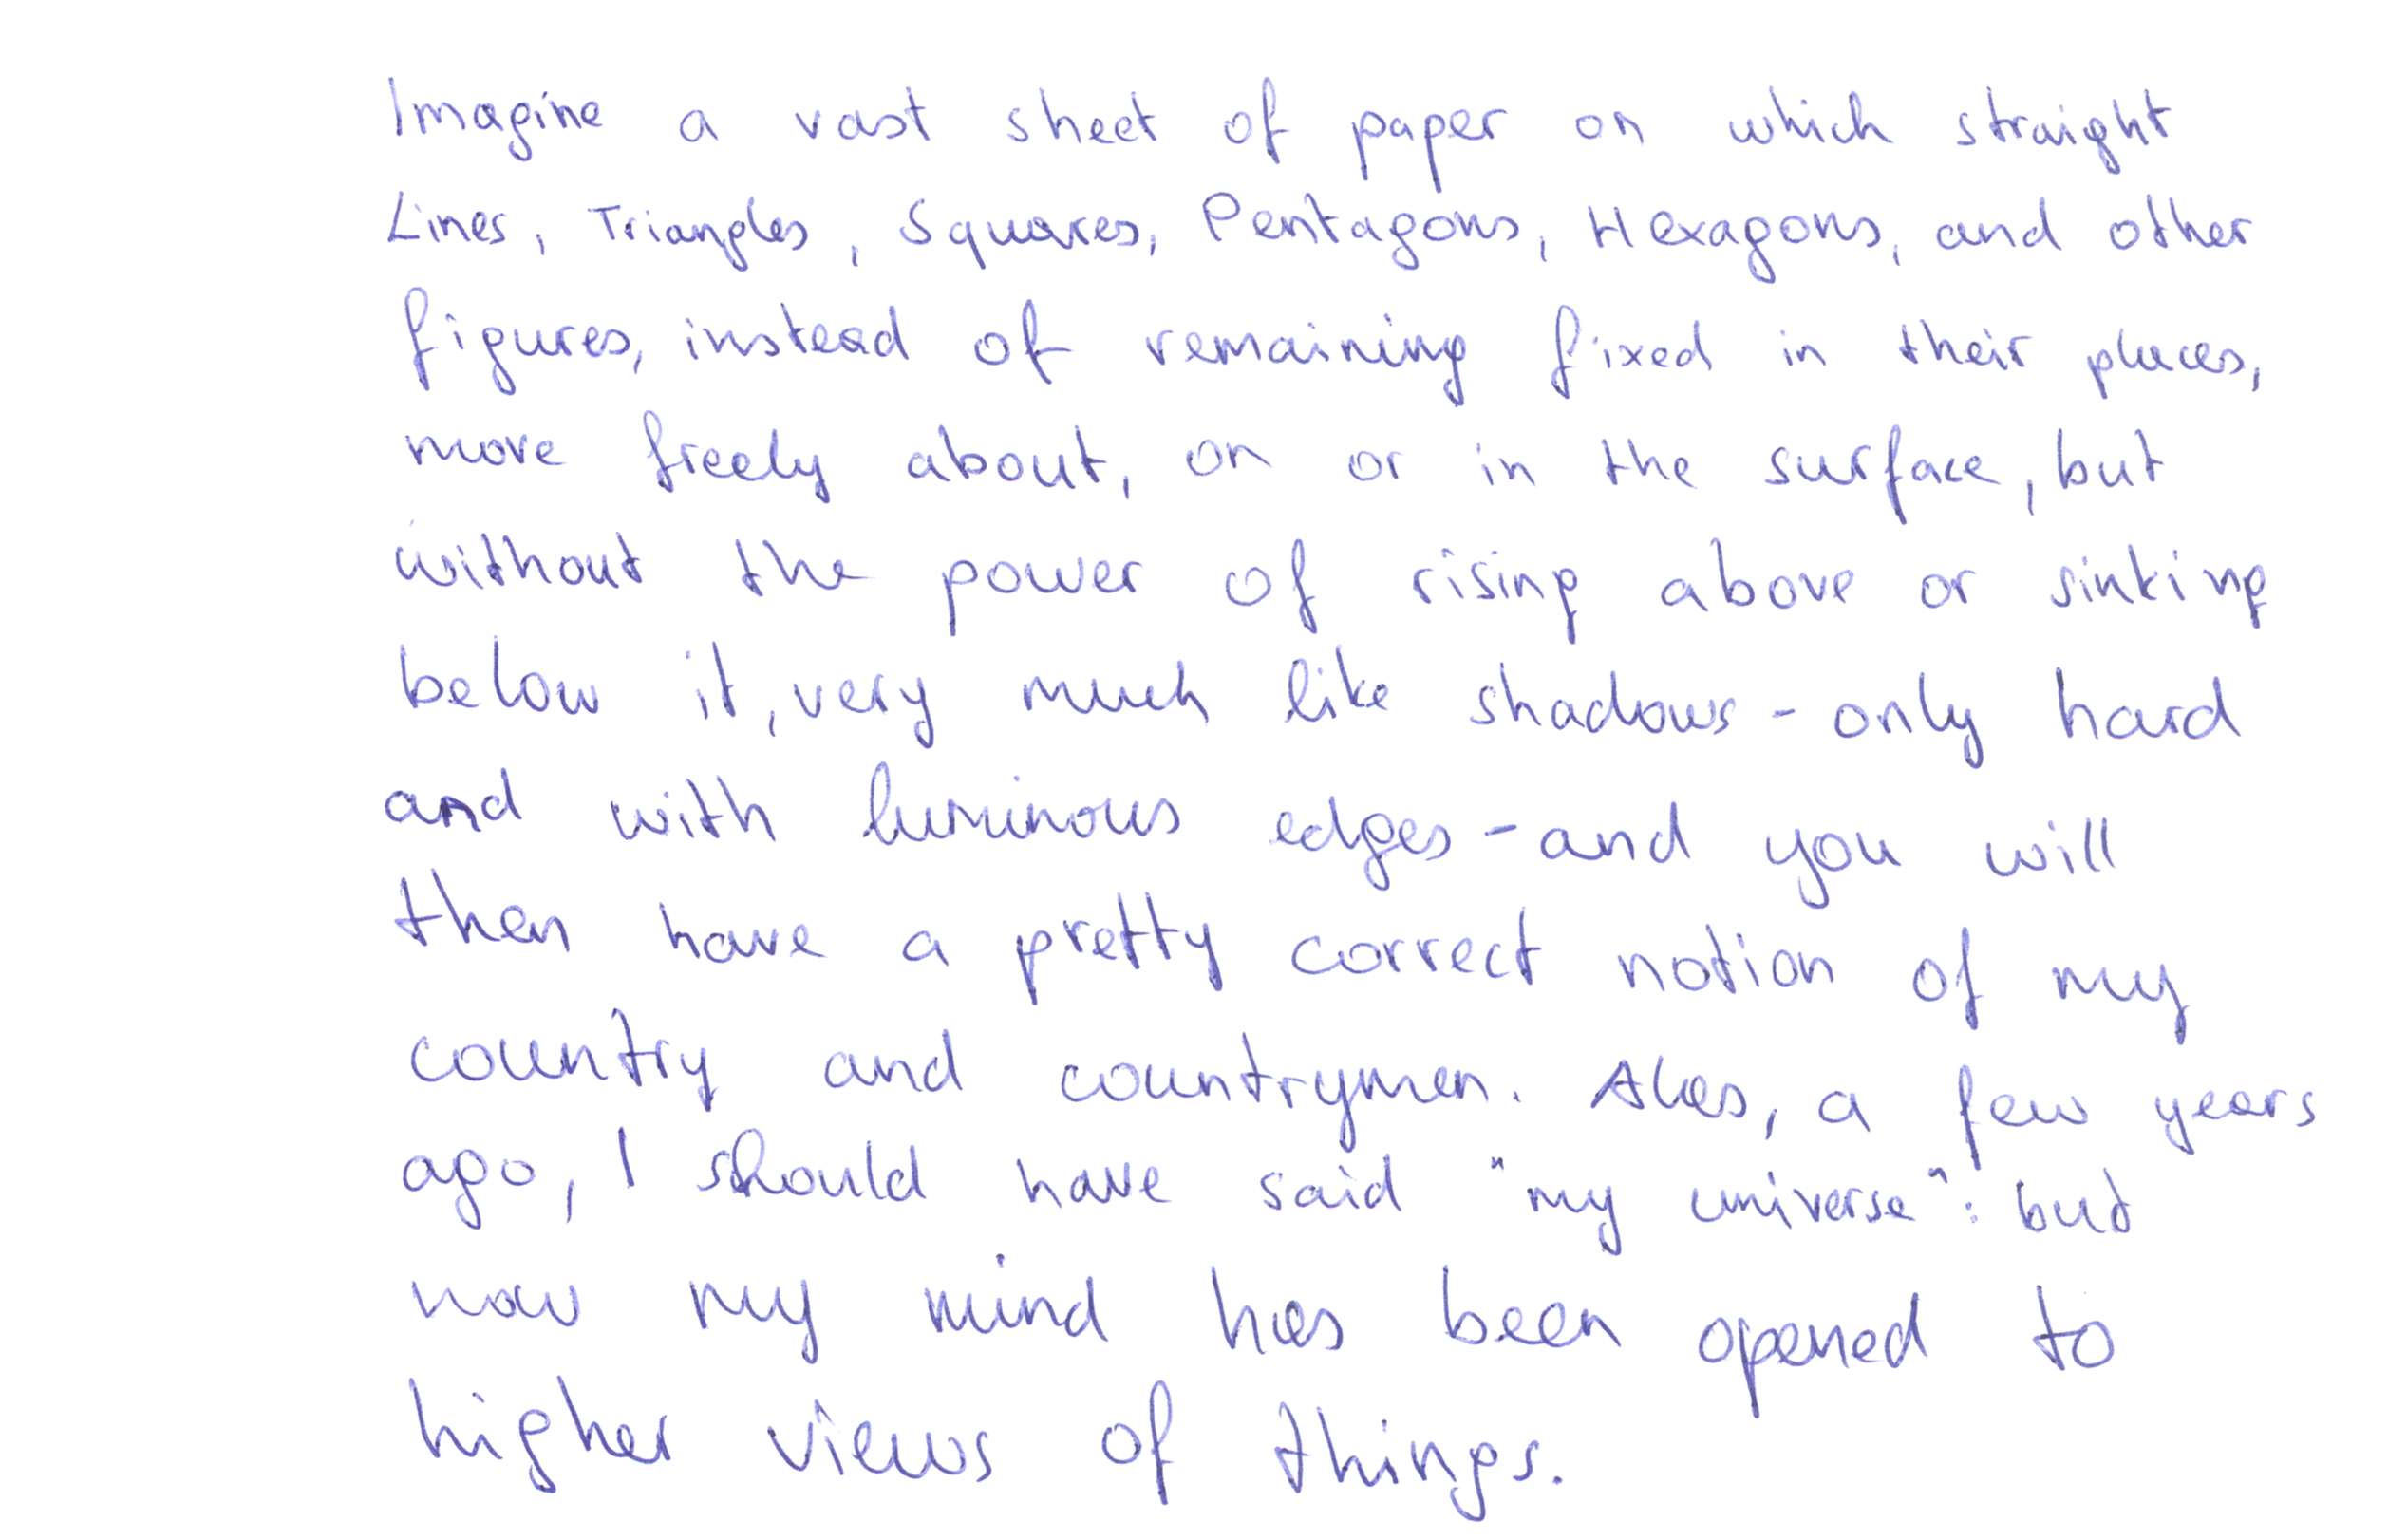 Imagine a vast sheet of paper on which straight
Lines, Triangles, Squares, Pentagons, Hexagons, and other
figures, instead of remaining fixed in their places,
move freely about, on or in the surface, but
without the power of rising above or sinking
below it, very much like shadows - only hard
and with luminous edges - and you will
then have a pretty correct notion of my
country and countrymen. Alas, a few years
ago, I should have said "my universe": but
now my mind has been opened to
higher views of things.